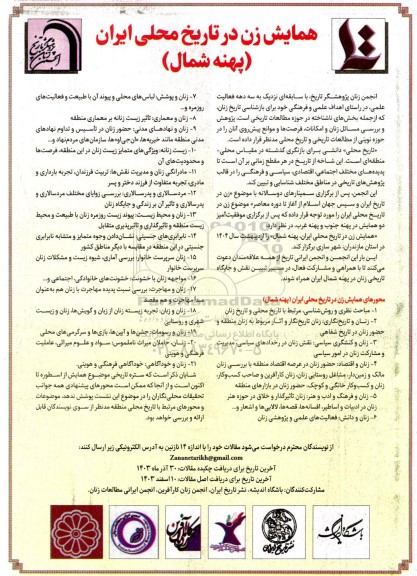 همایش زن در تاریخ محلی ایران
(پهنه شمال)
انجمن زنان پژوهشگر تاریخ، با سابقه‌ای نزدیک به سه دهه فعالیت
علمی، در راستای اهداف علمی و فرهنگی خود برای بازشناسی تاریخ زنان،
که ازجمله بخش‌های ناشناخته در حوزه مطالعات تاریخی است، پژوهش
و بررسی مسائل زنان و امکانات، فرصت‌ها و موانع پیش‌روی آنان را در
حوزه نوینی از مطالعات تاریخی و تاریخ محلی مدنظر قرار داده است.
«تاریخ محلی» دانشی برای بازنگری گذشته در مقیاس محلی-
منطقه‌ای است. این شاخه از تاریخ در هر مقطع زمانی بر آن است تا
پدیده‌های مختلف اجتماعی، اقتصادی، سیاسی و فرهنگی را در قالب
پژوهش‌های تاریخی در مناطق مختلف شناسایی و تبیین کند.
این انجمن، پس از برگزاری سمینارهای دوسالانه با موضوع «زن در
تاریخ ایران و سپس جهان اسلام از آغاز تا دوره معاصر» موضوع زن در
تاریخ محلی ایران را مورد توجه قرار داده که پس از برگزاری موفقیت‌آمیز
دو همایش در پهنه جنوب و پهنه غرب، در نظر دارد:
«همایش زن در تاریخ محلی ایران، پهنه شمال» را اردیبهشت سال ۱۴۰۴
در استان مازندران، شهر ساری برگزار کند.
از این رو، انجمن و انجمن ایرانی تاریخ از همه علاقه‌مندان دعوت
می‌کنند تا با همراهی و مشارکت فعال، در مسیر تبیین نقش و جایگاه
تاریخی زنان در پهنه شمال ایران همراه شوند.
محورهای همایش زن در تاریخ محلی ایران (پهنه شمال)
۱- مباحث نظری و روش‌شناسی، مرتبط با تاریخ محلی و تاریخ زنان
۲- زنان و تاریخ‌نگاری: زنان تاریخ‌نگار و آثار مربوط به زنان منطقه و
حضور زنان در تاریخ شفاهی
۳- زنان و کنشگری سیاسی: نقش زنان در رخدادهای سیاسی، مدیریت
و مشارکت زنان در امور سیاسی
۴- زنان و اقتصاد: حضور زنان در عرصه اقتصاد منطقه با بررسی زنان
مالک و زمین‌دار، مشاغل روستایی زنان، زنان کارآفرین و صاحب کسب‌وکار،
زنان و کسب‌وکار خانگی و کوچک، حضور زنان در بازارهای منطقه
۵- زنان و فرهنگ و ادب و هنر: زنان تاثیرگذار و خلاق در حوزه هنر
زنان در ادبیات و اساطیر، افسانه‌ها، قصه‌ها، لالایی‌ها و اشعار و...
۶- زنان و دانش: فعالیت‌های علمی و پژوهشی زنان
۷- زنان و پوشش: لباس‌های محلی و پیوند آن با طبیعت و فعالیت‌های
روزمره و...
۸- زنان و معماری: تأثیر زیست زنانه بر معماری منطقه
۹- زنان و نهادهای مدنی: حضور زنان در تأسیس و تداوم نهادهای
مدنی منطقه مانند خیریه‌ها، «ان‌جی‌او»ها، سازمان‌های مردم‌نهاد و...
۱۰- زیست زنانه: ویژگی‌های متمایز زیست زنان در این منطقه، فرصت‌ها
و محدودیت‌های آن
۱۱- مادرانگی زنان و مدیریت نقش‌ها: تربیت فرزندان، تجربه بارداری و
مادری، تجربه متفاوت از فرزند دختر و پسر
۱۲- مردسالاری و پدرسالاری: بررسی زوایای مختلف مردسالاری و
پدرسالاری و تأثیر آن بر زندگی و جایگاه زنان
۱۳- زنان و محیط زیست: پیوند زیست روزمره زنان با طبیعت و محیط
زیست منطقه و تاثیرگذاری و تاثیرپذیری متقابل
۱۴- نابرابری‌های جنسیتی: نشان‌دادن وجوه متمایز و متشابه نابرابری
جنسیتی در این منطقه در مقایسه با دیگر مناطق کشور
۱۵- زنان سرپرست خانوار: بررسی آماری، شیوه زیست و مشکلات زنان
سرپرست خانوار
۱۶- مواجهه زنان با خشونت: خشونت‌های خانوادگی، اجتماعی و...
۱۷- زنان و مهاجرت: بررسی نسبت پدیده مهاجرت با زنان هم به‌عنوان
مهاجرت و هم مقصد
۱۸- زنان و زبان: تجربه زیسته زنان از زبان و گویش‌ها، زنان و زیست
شهری و روستایی
۱۹- زنان و رسومات: جشن‌ها و آیین‌ها، بازی‌ها و سرگرمی‌های محلی
۲۰- زنان، حاملان میراث ناملموس: سواد و علوم میراثی، عاملیت
فرهنگی و هویتی
۲۱- زنان و خودآگاهی: خودآگاهی فرهنگی و هویتی
شایان ذکر است که ستره تاریخی موضوع همایش از اسطوره تا
اکنون است و از آنجا که ممکن است محورهای پیشنهادی همه جوانب
تحقیقات محلی‌نگاران را در موضوع این نشست پوشش ندهد، موضوعات
و محورهای مرتبط با تاریخ محلی منطقه مدنظر از سوی نویسندگان قابل
ارائه و بررسی خواهد بود.
از نویسندگان محترم درخواست می‌شود مقالات خود را با اندازه ۱۴ نازنین به آدرس الکترونیکی زیر ارسال کنند:
Zanunetarikh@gmail.com
آخرین تاریخ برای دریافت چکیده مقالات: ۳۰ آذر ماه ۱۴۰۳
آخرین تاریخ برای دریافت اصل مقالات: ۱۰ اسفند ۱۴۰۳
مشارکت‌کنندگان: باشگاه اندیشه، نشر تاریخ ایران، انجمن زنان کارآفرین، انجمن ایرانی مطالعات زنان.